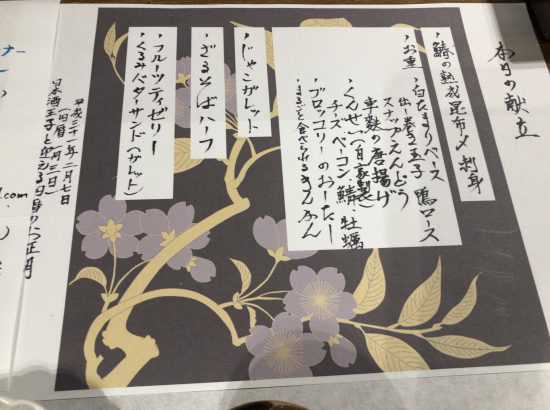 本日の献立
・鰆の熟成昆布〆刺身
・お重
・白だまりベース 鴨ロース
出し巻き玉子
スナップえんどう
車麩の唐揚げ
・くんせい(自家製)
チーズ・ベーコン・鯖・牡蠣
・ブロッコリーのおーたしー
・まるごと食べられるきんかん
・じゃこガレット
・ざるそばハーフ
・フルーツティゼリー
・くるみバターサンド(ガレット)
平成三十一年二月七日
(旧暦一月三日)
日本酒王子と迎える旧暦のお正月
ナー
.com